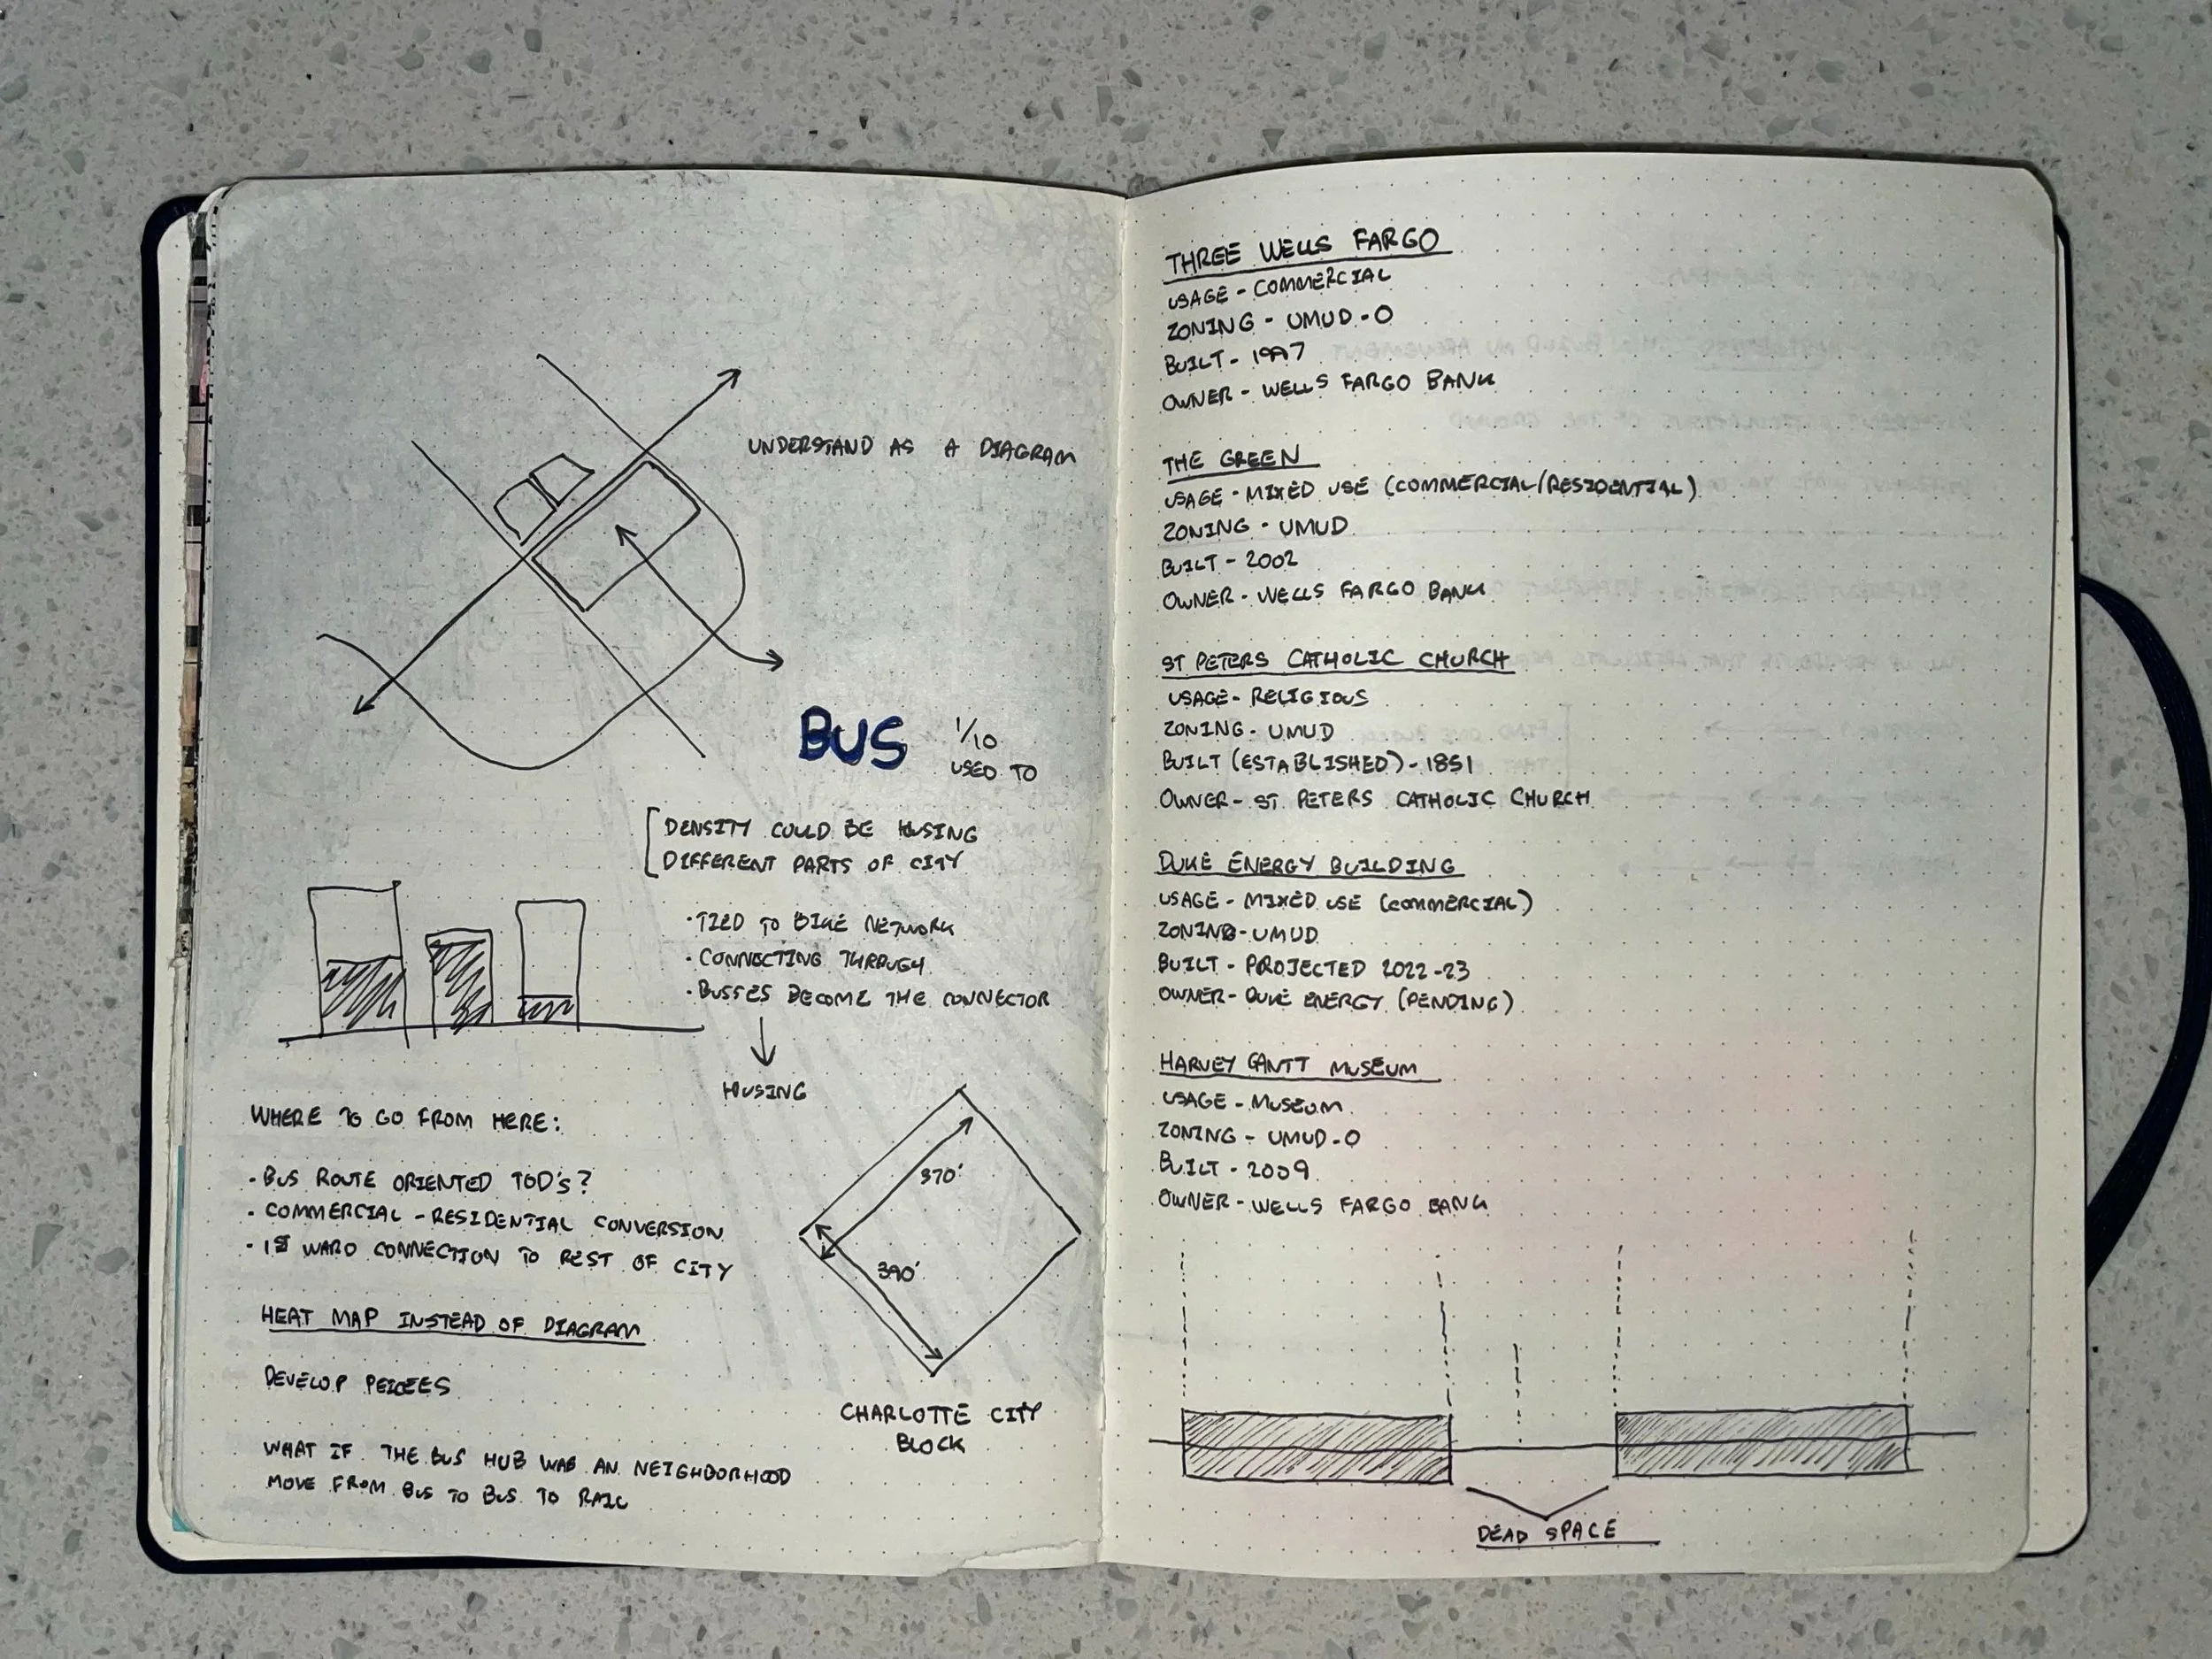 UNDERSTAND AS A DIAGRAM
BUS
1/10
USED TO
DENSITY COULD BE HUSING
DIFFERENT PARTS OF CITY
· TIED TO BIKE NETWORK
· CONNECTING THROUGH
· BUSSES BECOME THE CONNECTOR
HUSING
WHERE TO GO FROM HERE:
· BUS ROUTE ORIENTED TOD'S?
· COMMERCIAL - RESIDENTIAL CONVERSION
· 1ST WARD CONNECTION TO REST OF CITY
HEAT MAP INSTEAD OF DIAGRAM
DEVELOP PEICEES
WHAT IF THE BUS HUB WAS AN NEIGHBORHOOD
MOVE FROM BUS TO BUS TO RAIL
370'
390'
CHARLOTTE CITY
BLOCK
THREE WELLS FARGO
USAGE - COMMERCIAL
ZONING - UMUD-O
BUILT - 1997
OWNER - WELLS FARGO BANK
THE GREEN
USAGE - MIXED USE (COMMERCIAL/RESIDENTIAL)
ZONING - UMUD
BUILT - 2002
OWNER - WELLS FARGO BANK
ST PETERS CATHOLIC CHURCH
USAGE - RELIGIOUS
ZONING - UMUD
BUILT (ESTABLISHED) - 1851
OWNER - ST PETERS CATHOLIC CHURCH
DUKE ENERGY BUILDING
USAGE - MIXED USE (COMMERCIAL)
ZONING - UMUD
BUILT - PROJECTED 2022-23
OWNER - DUKE ENERGY (PENDING)
HARVEY GANTT MUSEUM
USAGE - MUSEUM
ZONING - UMUD-O
BUILT - 2009
OWNER - WELLS FARGO BANK
DEAD SPACE